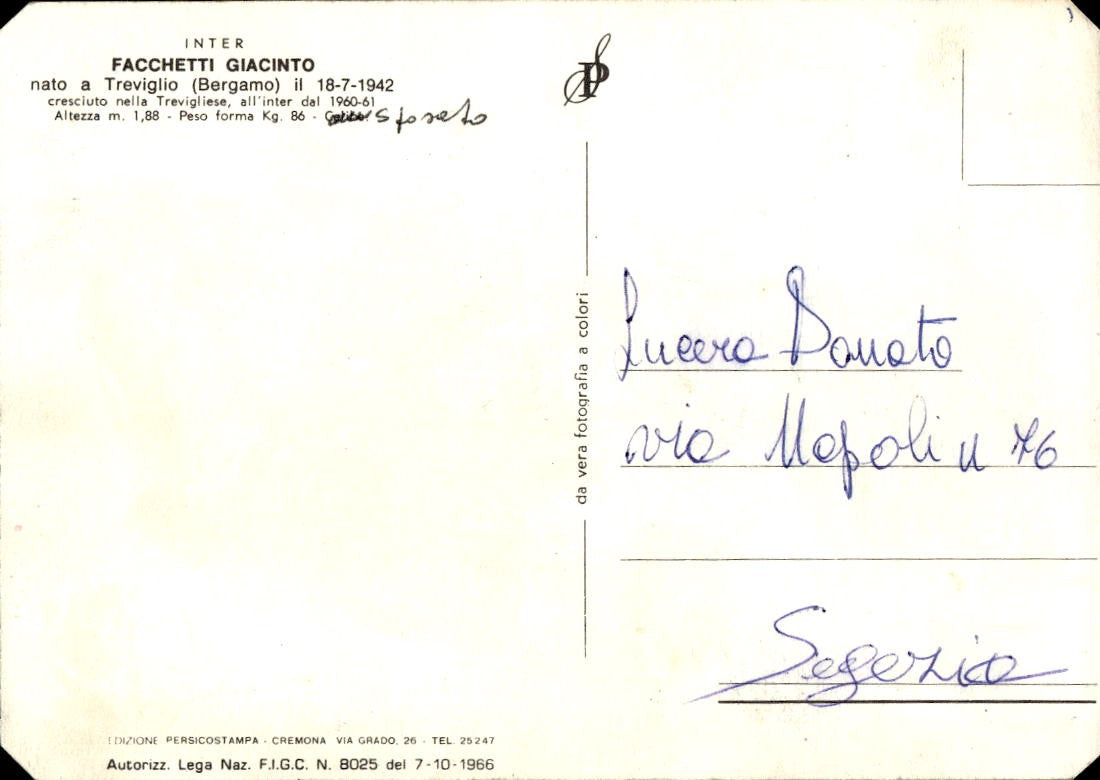 INTER
FACCHETTI GIACINTO
nato a Treviglio (Bergamo) il 18-7-1942
cresciuto nella Trevigliese, all'inter dal 1960-61
Altezza m. 1,88 - Peso forma Kg. 86 - sposato
da vera fotografia a colori
Lucera Donato
via Napoli n 76
Segezia
EDIZIONE PERSICOSTAMPA - CREMONA VIA GRADO, 26 - TEL. 25247
Autorizz. Lega Naz. F.I.G.C. N. 8025 del 7-10-1966